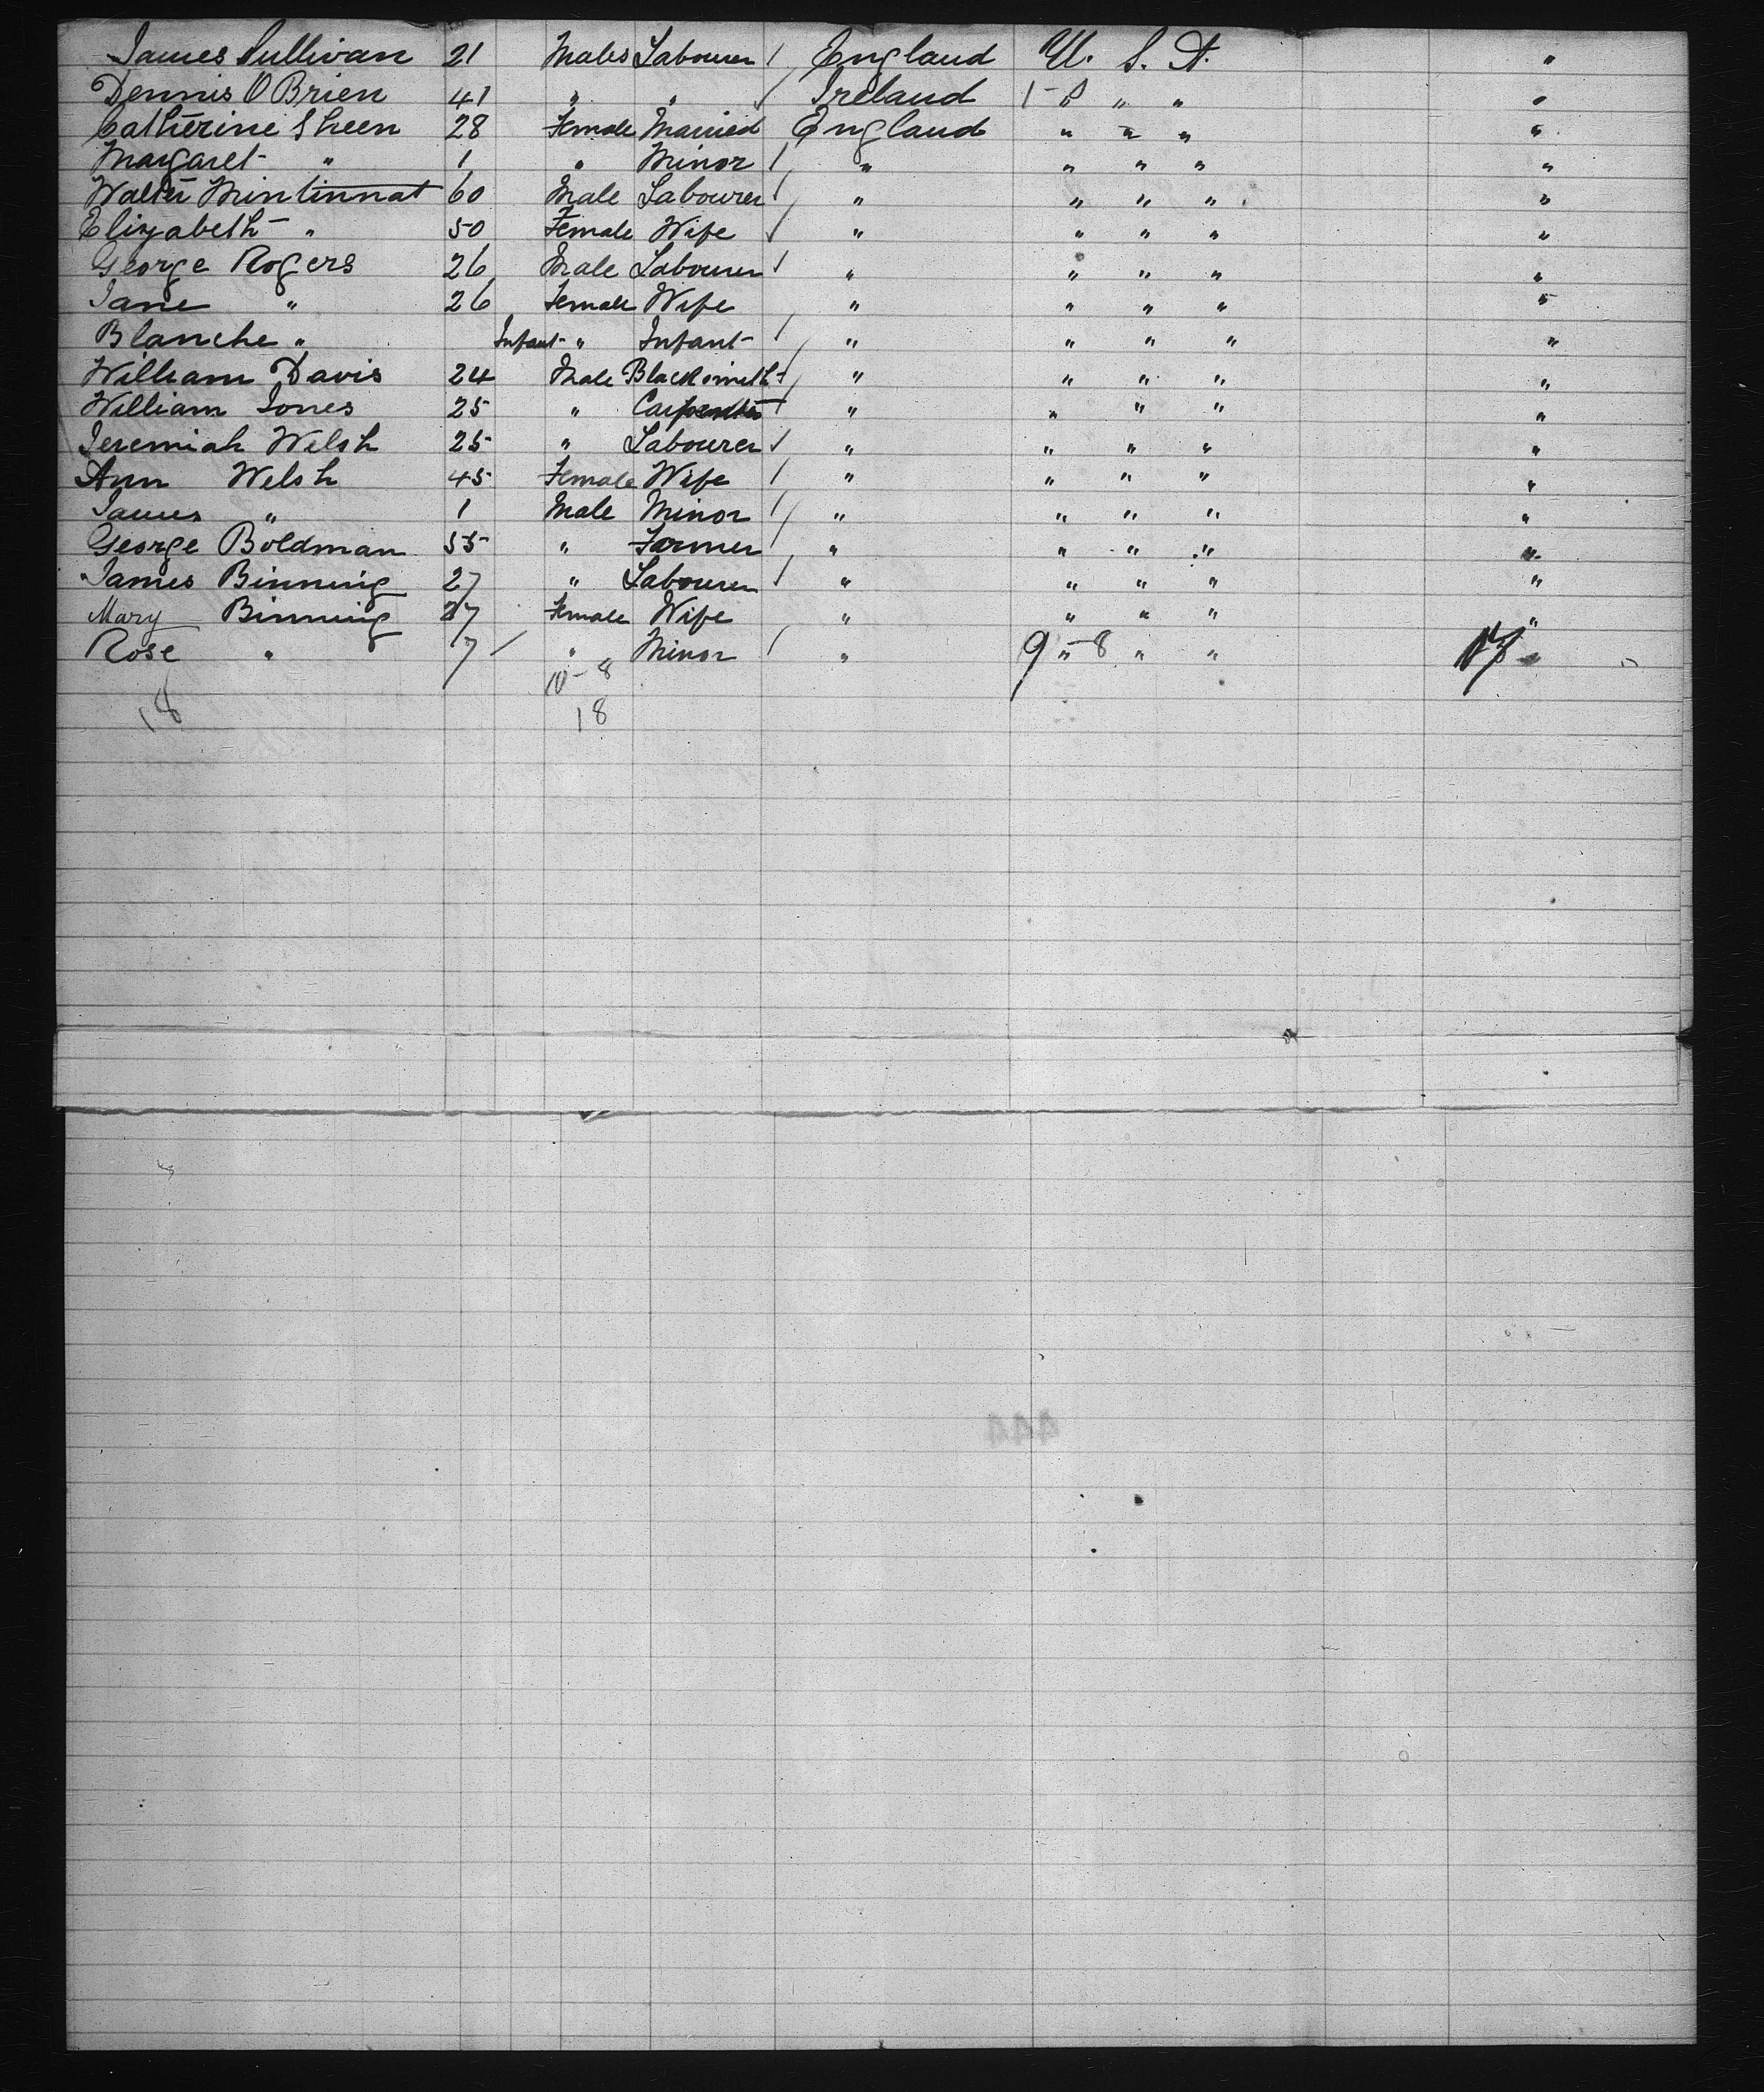 James Sullivan 21 Males Labourer / England U. S. A. "
Dennis O Brien 41 " " / Ireland 1-0 " " " "
Catherine Sheen 28 Female Married England " " " "
Margaret " 1 " Minor / " " " " "
Walter Mintinnat 60 Male Labourer / " " " " "
Elizabeth " 50 Female Wife / " " " " "
George Rogers 26 Male Labourer / " " " " "
Jane " 26 Female Wife " " " " "
Blanche " Infant " Infant / " " " " "
William Davis 24 Male Blacksmith / " " " " "
William Jones 25 " Carpenter / " " " " "
Jeremiah Welsh 25 " Labourer / " " " " "
Ann Welsh 45 Female Wife / " " " " "
James " 1 Male Minor / " " " " "
George Boldman 55 " Farmer / " " " " "
James Binning 27 " Labourer / " " " " "
Mary Binning 27 Female Wife " " " " "
Rose " 7 / " Minor / " 9-8 " " " 17 "
10-8
18 18